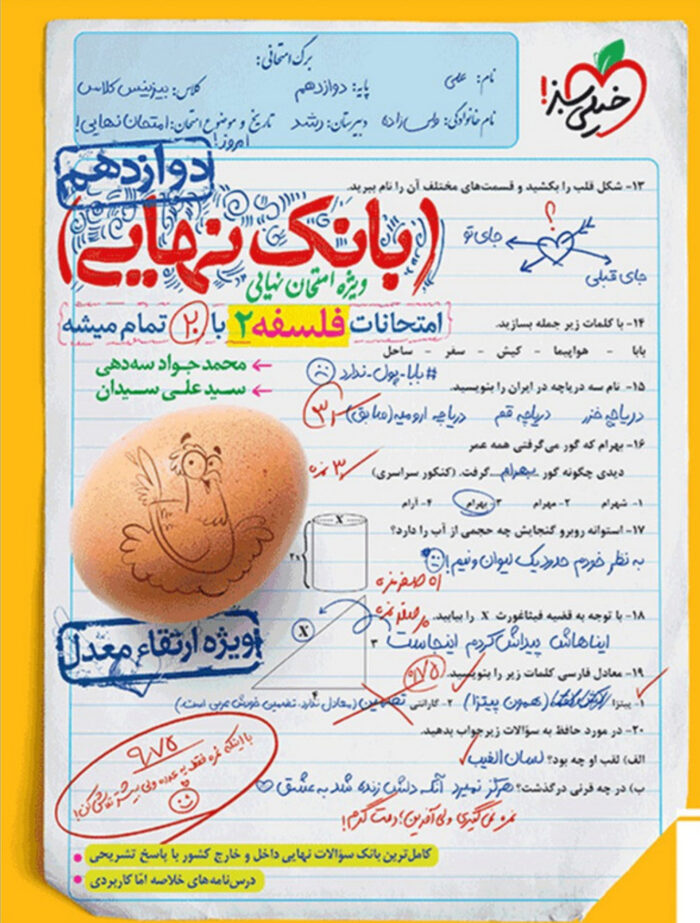 خیلی سبز!
برگ امتحانی:
نام: علی
پایه: دوازدهم
کلاس: بیزینس کلاس
نام خانوادگی: والی زاده
دبیرستان: رشد
تاریخ و موضوع امتحان: امتحان نهایی!
امروز!
دوازدهم
(بانک نهایی)
ویژه امتحان نهایی
امتحانات فلسفه ۲ با ۲۰ تمام میشه
← محمدجواد سه‌دهی
← سید علی سیدان
۱۳- شکل قلب را بکشید و قسمت‌های مختلف آن را نام ببرید.
؟
جای تو
جای قبلی
۱۴- با کلمات زیر جمله بسازید.
بابا - هواپیما - کیش - سفر - ساحل
#بابا-پول-ندارد
۱۵- نام سه دریاچه در ایران را بنویسید.
دریاچه خزر دریاچه قم دریاچه ارومیه (سابق)
۱۶- بهرام که گور می‌گرفتی همه عمر
دیدی چگونه گور ..بهرام..گرفت. (کنکور سراسری)
۳ نمره
۱- شهرام ۲- مهرام ۳- بهرام ۴- آرام
۱۷- استوانه روبرو گنجایش چه حجمی از آب را دارد؟
X
۲x
به نظر خودم حدود یک لیوان و نیم!
صفر نمره
۱۸- با توجه به قضیه فیثاغورث، X را بیابید.
صفر نمره
ایناهاش پیداش کردم اینجاست
X
۳
۴
۱۹- معادل فارسی کلمات زیر را بنویسید.
۰/۷۵
۱- پیتزا (همون پیتزا) ۲- گارانتی تضمین (معادل ندارد. تضمین خودش عربی است.)
۲۰- در مورد حافظ به سؤالات زیر جواب بدهید.
الف) لقب او چه بود؟ لسان الغیب
ب) در چه قرنی درگذشت؟ هرگز نمیرد آنکه دلش زنده شد به عشق
نمره نمی‌گیری ولی آفرین؛ دمت گرم!
ویژه ارتقاء معدل
۹/۷۵
با اینکه نمره فقط یه عدده ولی بیشتر تلاش کن!
کامل‌ترین بانک سؤالات نهایی داخل و خارج کشور با پاسخ تشریحی
درس‌نامه‌های خلاصه امّا کاربردی